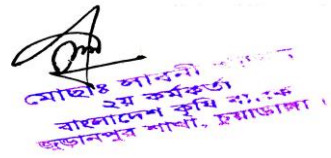 মোছাঃ লাবনী
২য় কর্মকর্তা
বাংলাদেশ কৃষি ব্যাংক
জুড়ানপুর শাখা, চুয়াডাঙ্গা ।